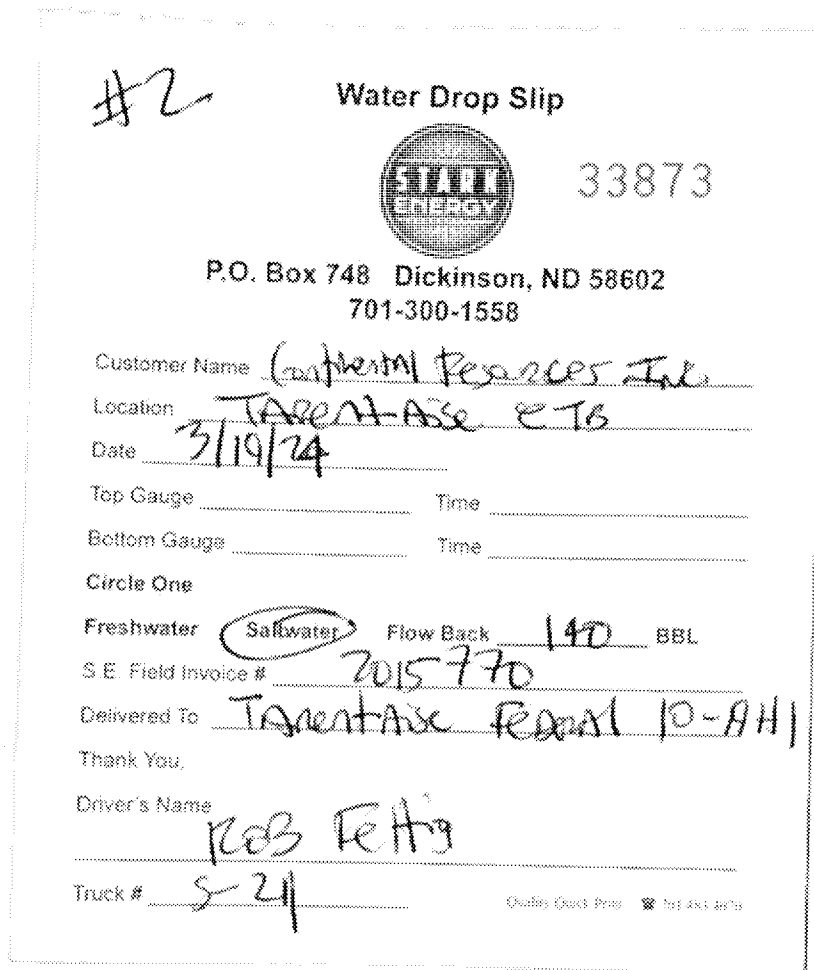 #2
Water Drop Slip
STARK
ENERGY
33873
P.O. Box 748 Dickinson, ND 58602
701-300-1558
Customer Name Continental Resources Inc.
Location TArentAise CTB
Date 3/19/24
Top Gauge Time
Bottom Gauge Time
Circle One
Freshwater Saltwater Flow Back 140 BBL
S.E. Field Invoice # 2015770
Delivered To TArentAise Federal 10-AH1
Thank You,
Driver's Name
ROB Fettig
Truck # S-211
Quality Quick Print